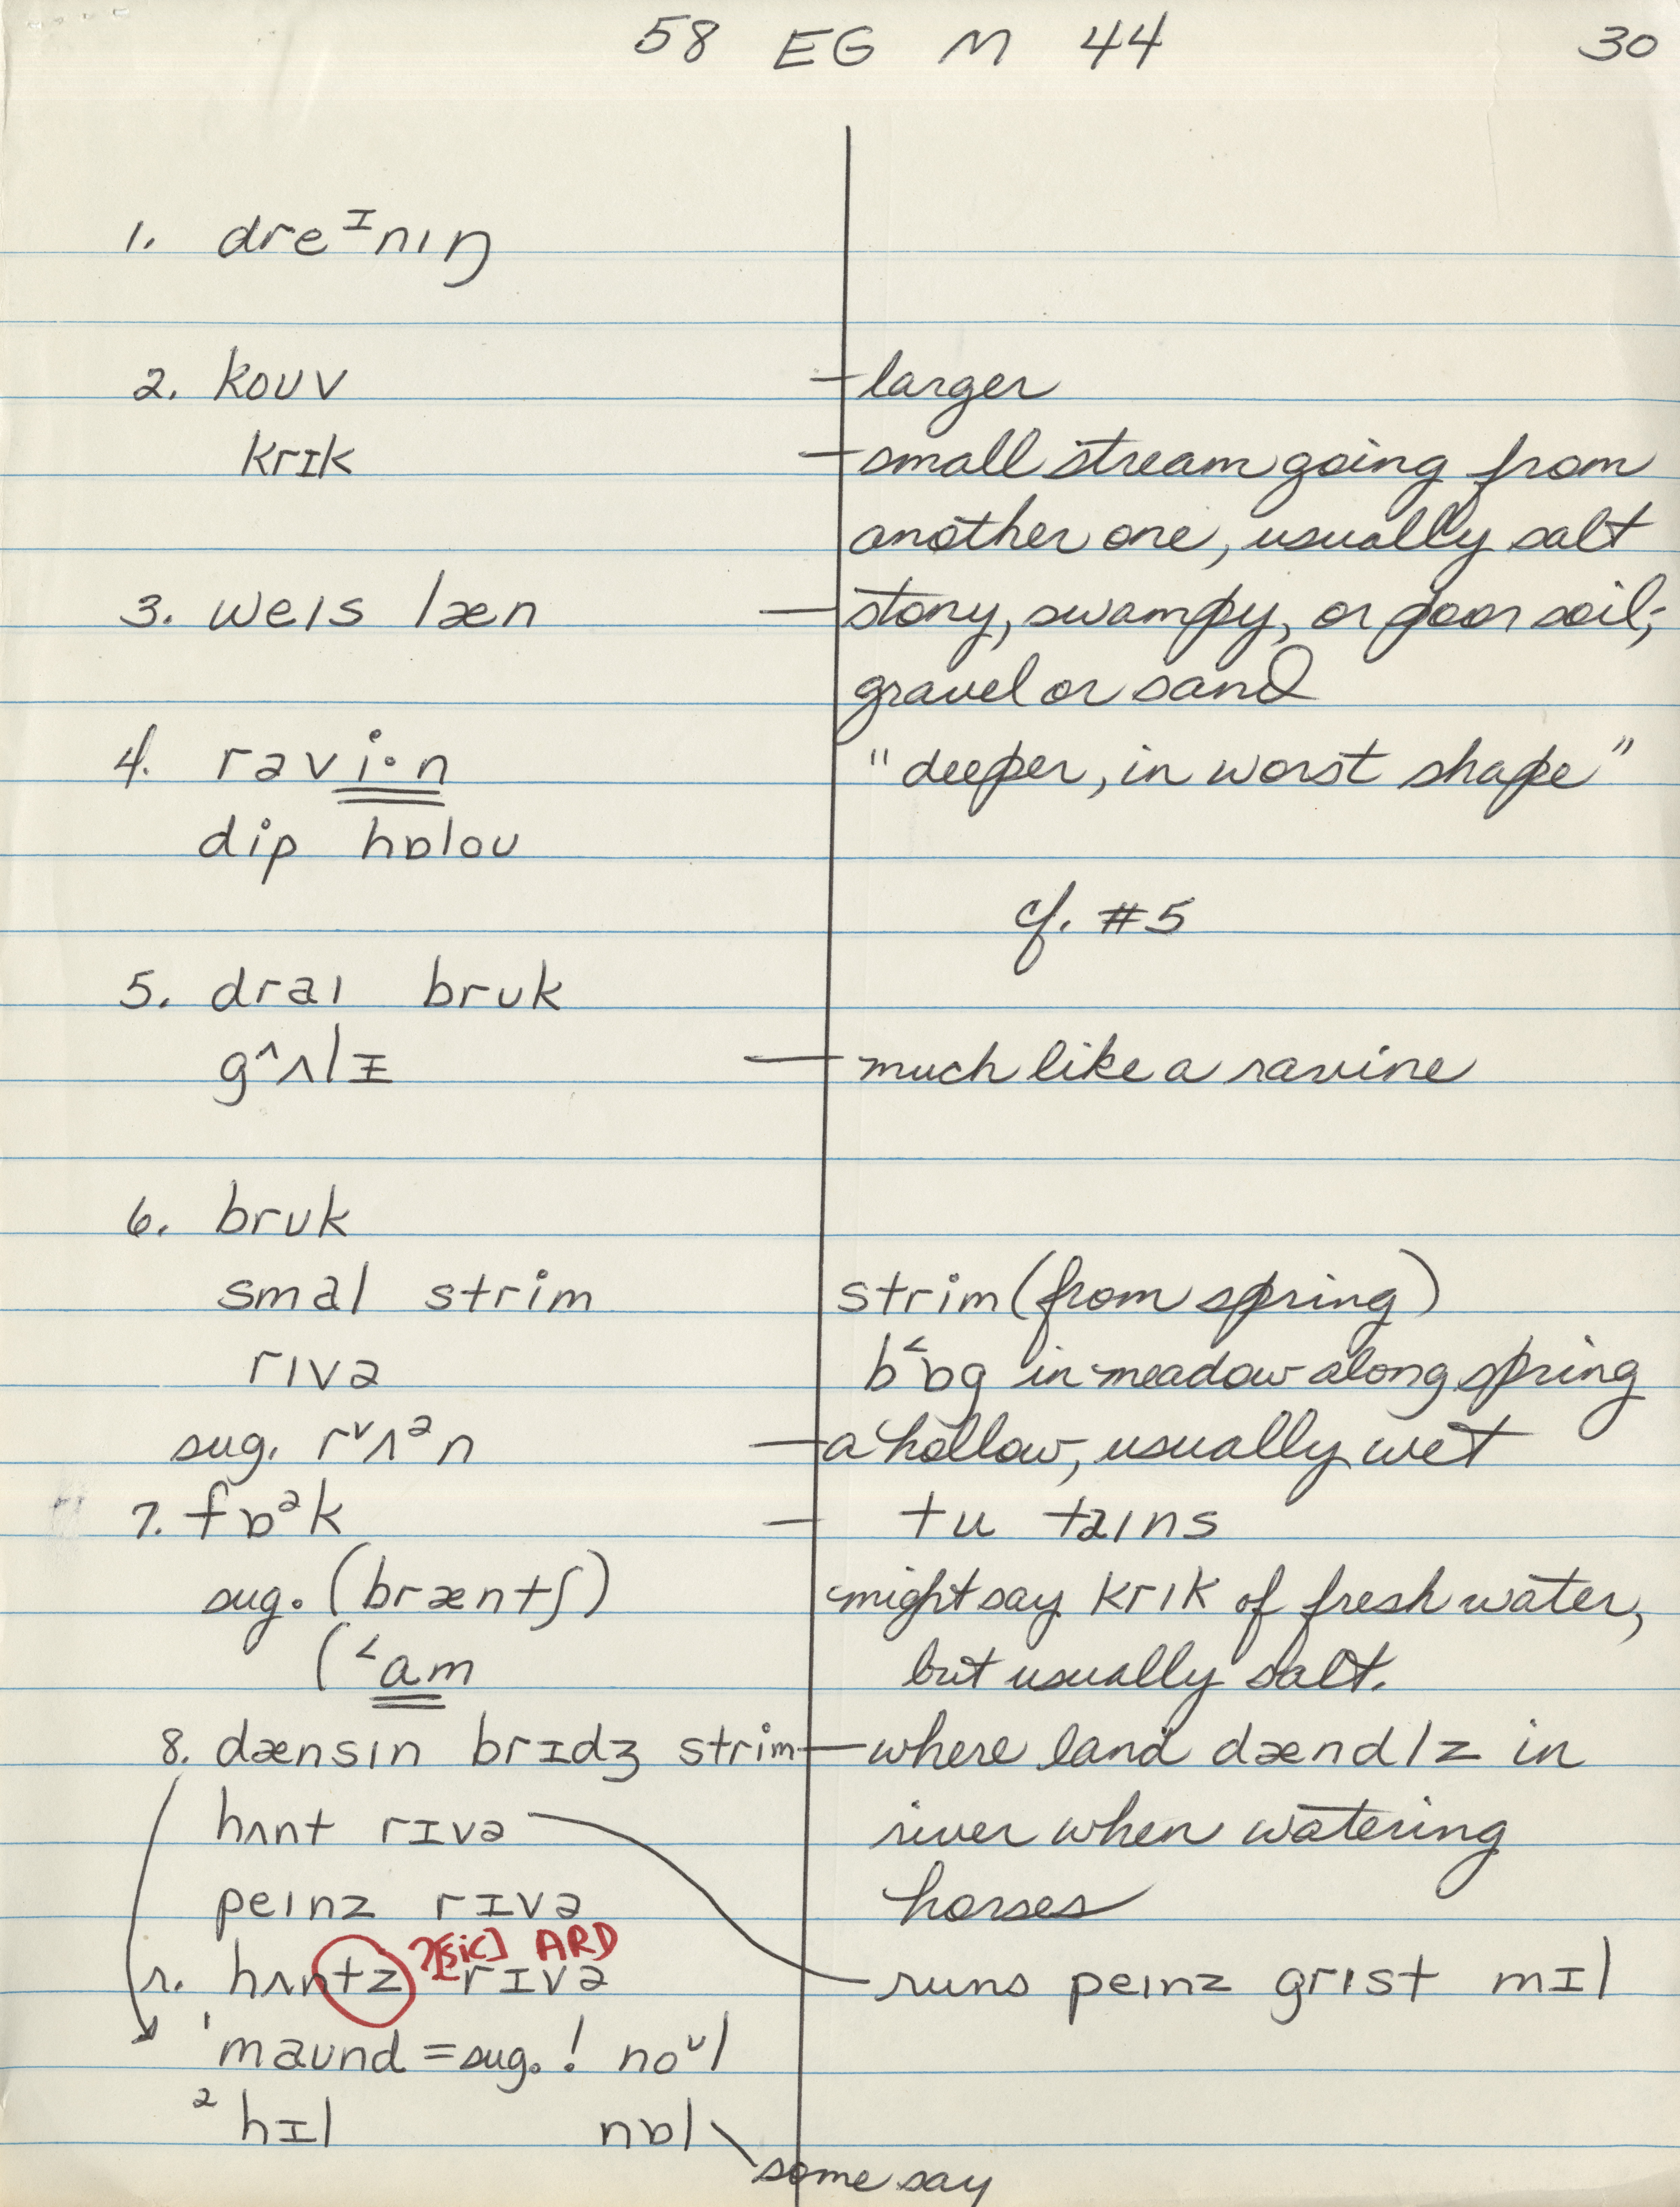 58 EG M 44 30
1. dreᴵnıŋ
2. koʊv — larger
krɪk — small stream going from
another one, usually salt
3. weɪs læn — stony, swampy, or poor soil;
gravel or sand
4. rəvi·n "deeper, in worst shape"
dip hɒloʊ
cf. #5
5. draɪ brʊk
g^ʌlɪ — much like a ravine
6. brʊk
smal strim strim (from spring)
rɪvə b˂ɒg in meadow along spring
sug. rᵛʌᵊn — a hollow, usually wet
7. fɒᵊk — tu taɪns
sug. (bræntʃ) might say krɪk of fresh water,
(˂am but usually salt.
8. dænsɪn brɪdʒ strim — where land dændlz in
hʌnt rɪvə river when watering
peɪnz rɪvə horses
?[sic] ARD
r. hʌntz rɪvə — runs peɪnz grɪst mɪl
¹maʊnd = sug.! noᵛl
²hɪl nɒl
some say